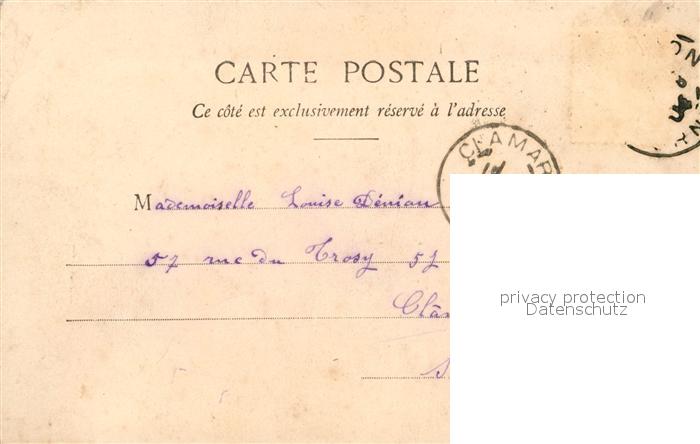 CARTE POSTALE
Ce côté est exclusivement réservé à l'adresse
CLAMAR
Mademoiselle Louise Déniau
57 rue du Trosy 57
Clam
privacy protection
Datenschutz